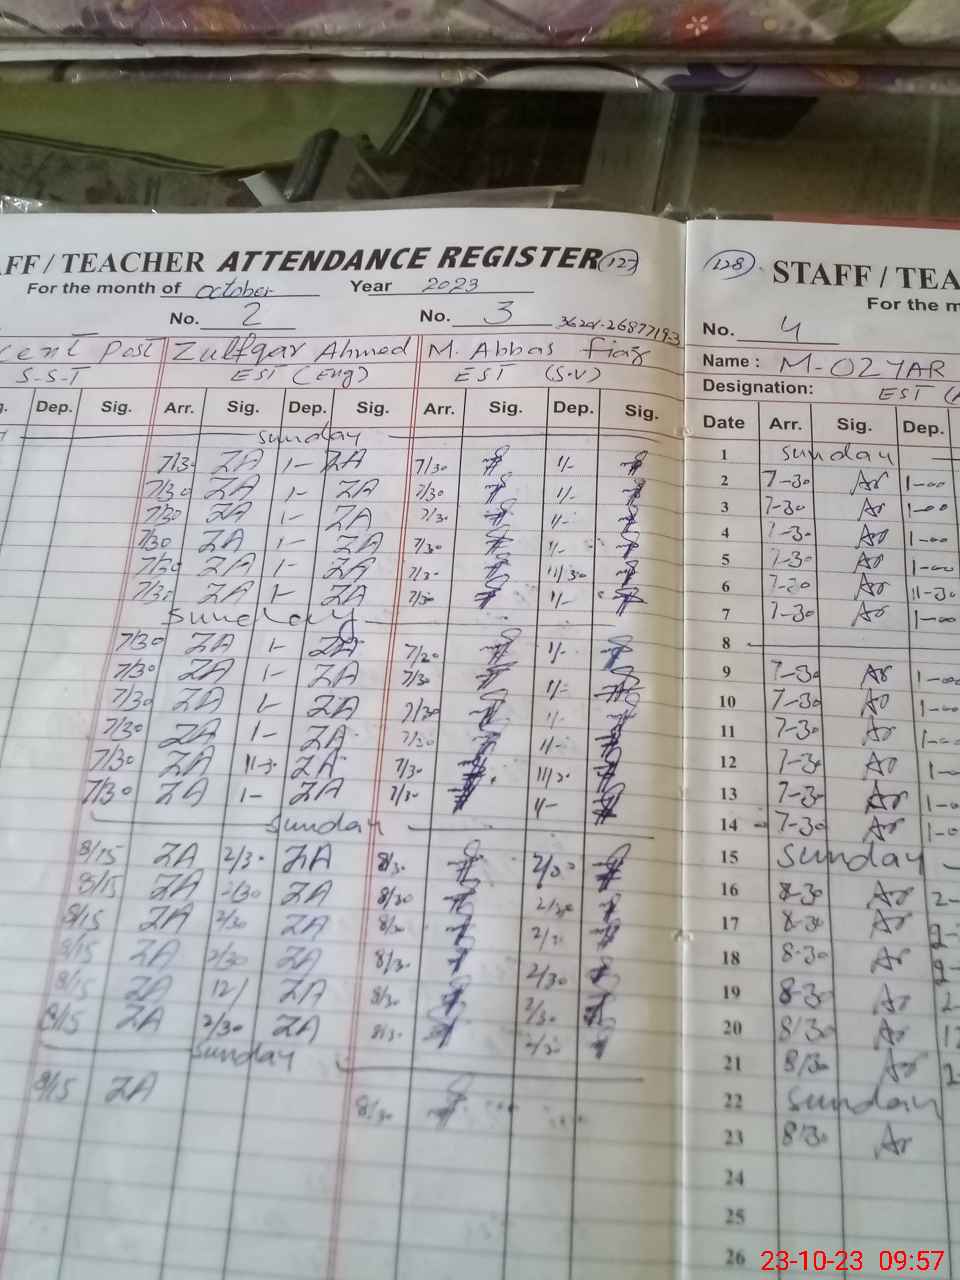 AFF / TEACHER ATTENDANCE REGISTER 127
For the month of october Year 2023
No. 2 No. 3
cent Post Zulfqar Ahmed M. Abbas fiaz
S-S-T EST (Eng) EST (S.V)
Dep. Sig. Arr. Sig. Dep. Sig. Arr. Sig. Dep. Sig.
sunday
7/30 ZA 1- ZA 7/30 1/-
7/30 ZA 1- ZA 7/30 1/-
7/30 ZA 1- ZA 7/30 1/-
7/30 ZA 1- ZA 7/30 1/-
7/30 ZA 1- ZA 7/30 11/30
7/30 ZA 1- ZA 7/30 1/-
Sunday
7/30 ZA 1- ZA 1/-
7/30 ZA 1- ZA 7/30 1/-
7/30 ZA 1- ZA 7/30 1/-
7/30 ZA 1- ZA 7/30 1/-
7/30 ZA 11-3 ZA 7/30
7/30 ZA 1- ZA 7/30 1/-
Sunday
8/15 ZA 2/30 ZA 8/30 2/30
8/15 ZA 2/30 ZA 8/30 2/30
8/15 ZA 2/30 ZA 8/30 2/30
8/15 ZA 2/30 ZA 8/30 2/30
8/15 ZA 12/ ZA 8/30 2/30
8/15 ZA 2/30 ZA 8/30 2/30
Sunday
8/15 ZA 8/30
128 STAFF / TEA
For the m
No. 4
Name : M-OZYAR
Designation: EST
Date Arr. Sig. Dep.
1 sunday
2 7-30 Ar 1-00
3 7-30 Ar 1-00
4 7-30 Ar 1-00
5 7-30 Ar 1-00
6 7-30 Ar 11-30
7 7-30 Ar 1-00
8
9 7-30 Ar 1-00
10 7-30 Ar 1-00
11 7-30 Ar 1-00
12 7-30 Ar 1-0
13 7-30 Ar 1-0
14 7-30 Ar 1-0
15 Sunday
16 8-30 Ar 2-
17 8-30 Ar 2-
18 8-30 Ar 2-
19 8-30 Ar 2-
20 8/30 Ar 12
21 8/30 Ar 2-
22 Sunday
23 8/30 Ar
24
25
26
23-10-23 09:57